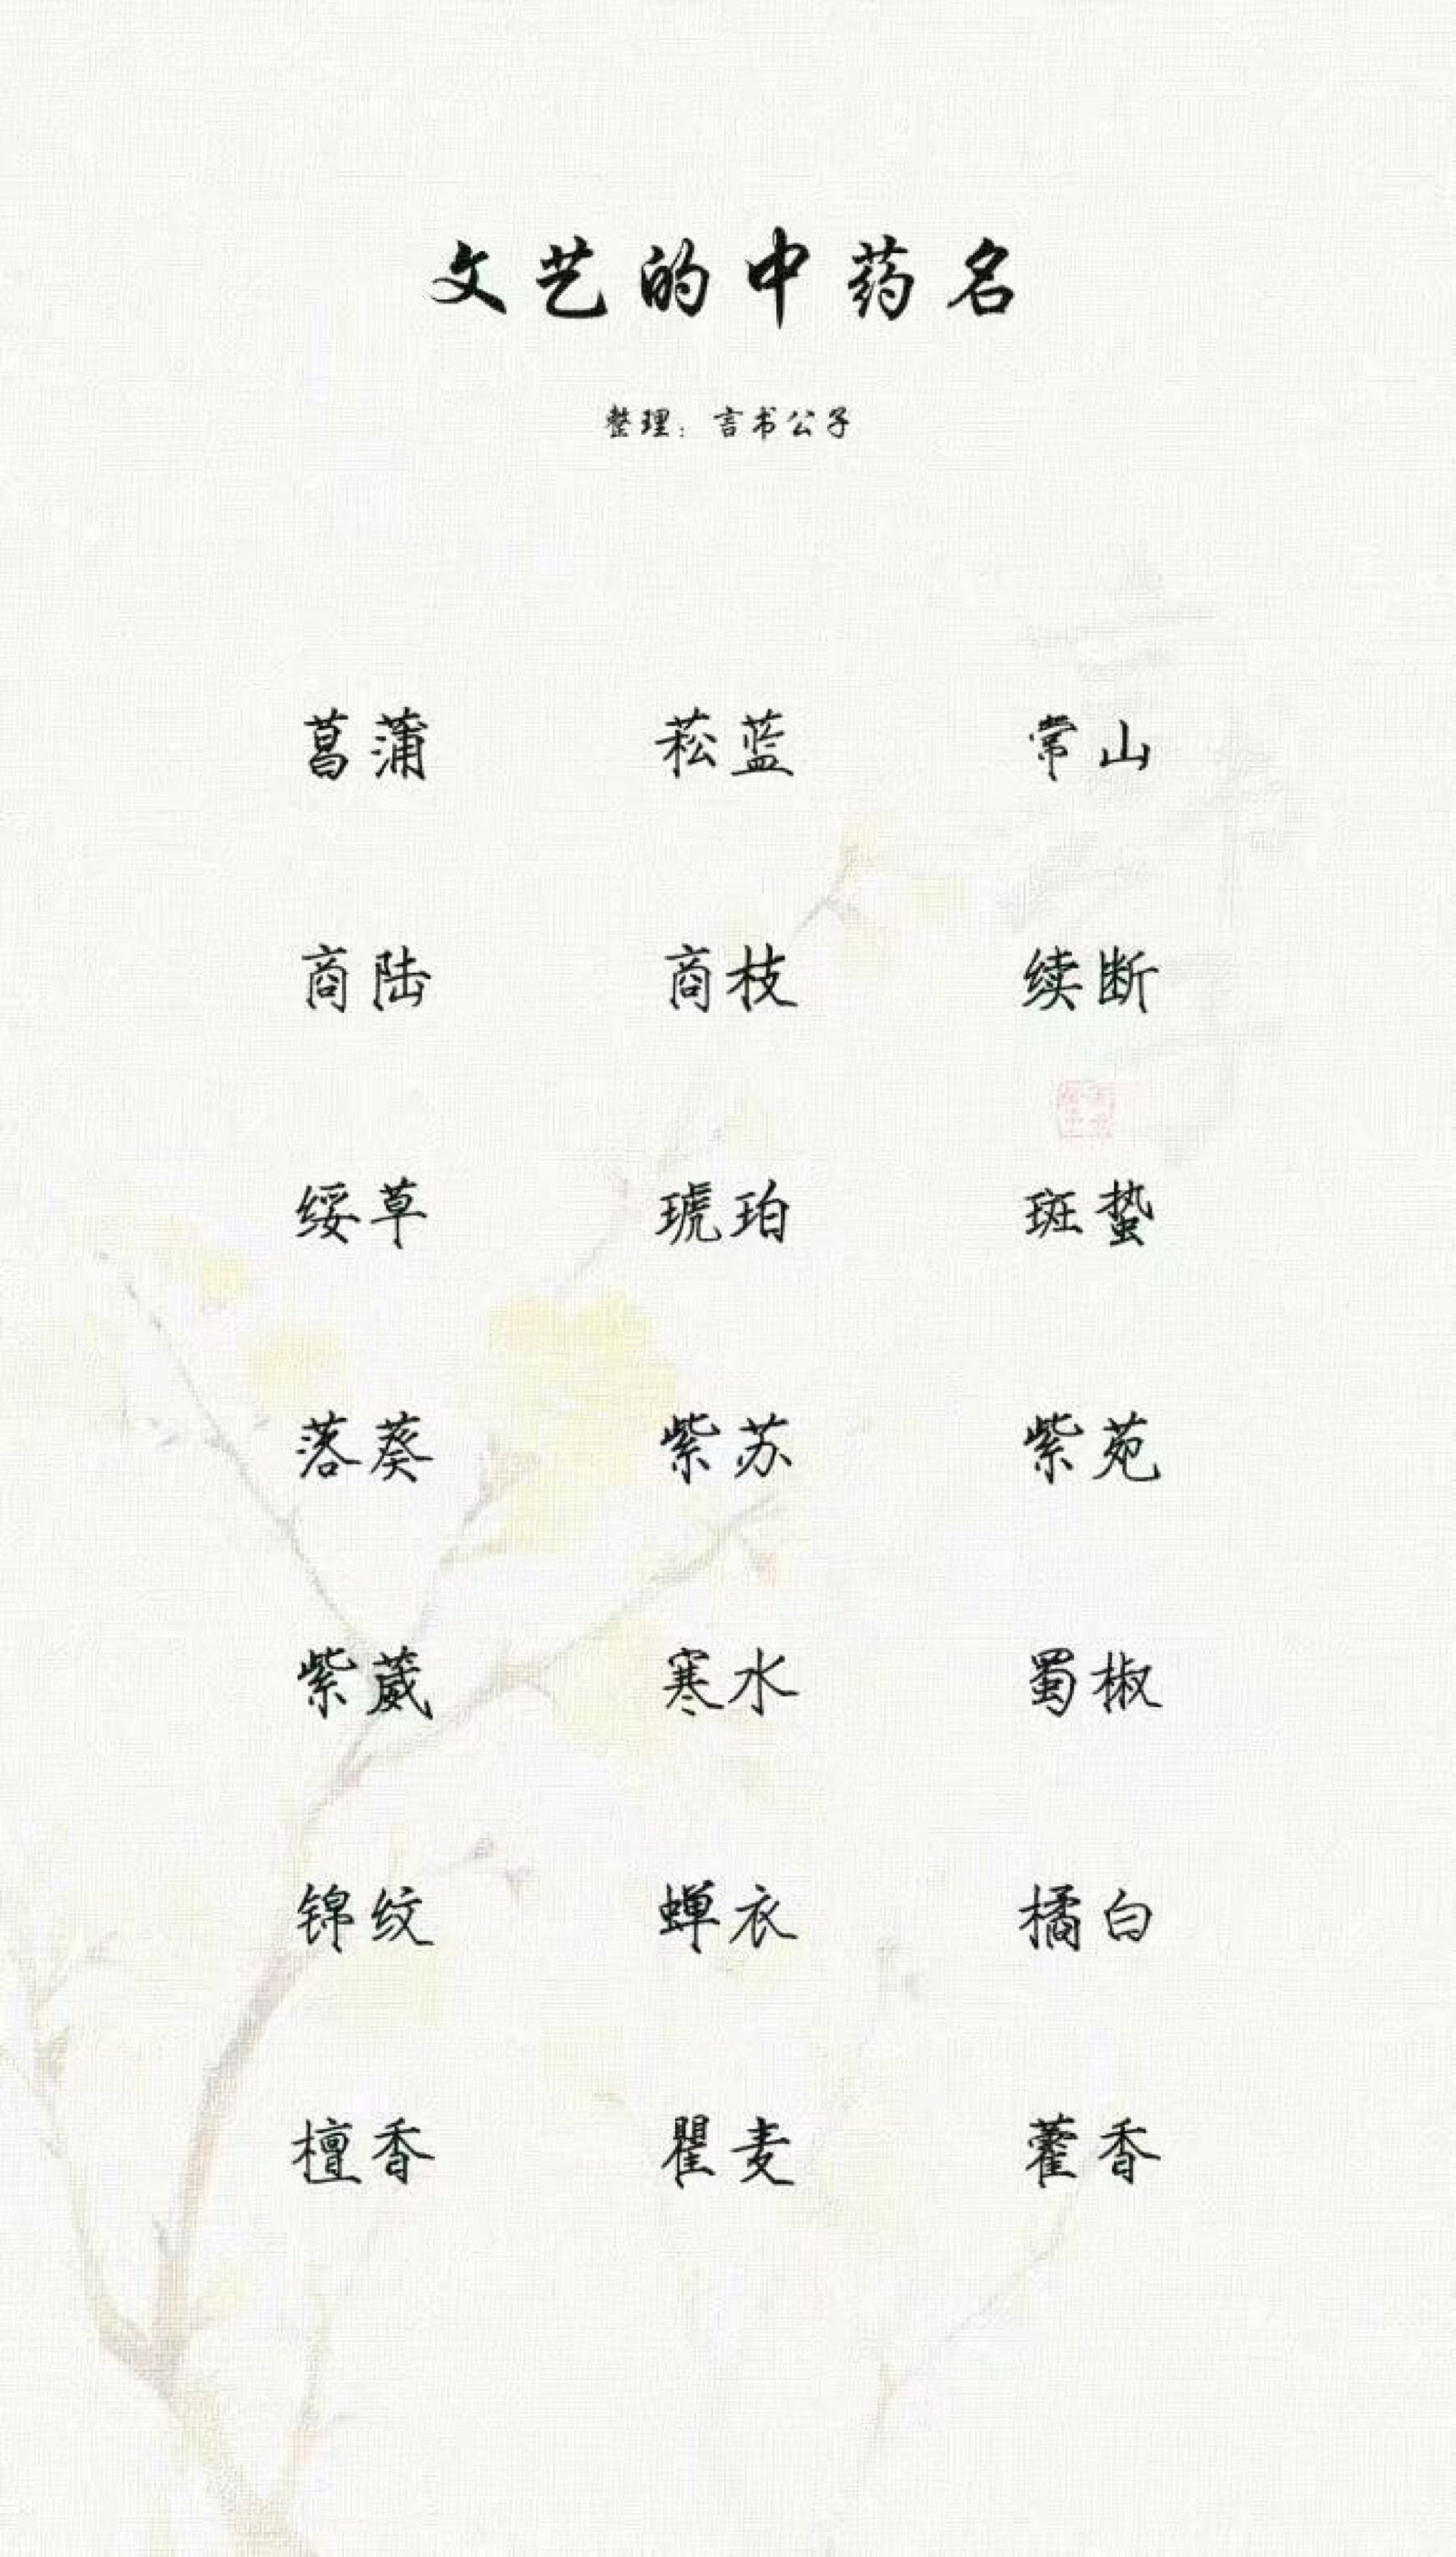 文艺的中药名
整理：言书公子
菖蒲 菘蓝 常山
商陆 商枝 续断
绥草 琥珀 斑蛰
落葵 紫苏 紫苑
紫葳 寒水 蜀椒
锦纹 蝉衣 橘白
檀香 瞿麦 藿香